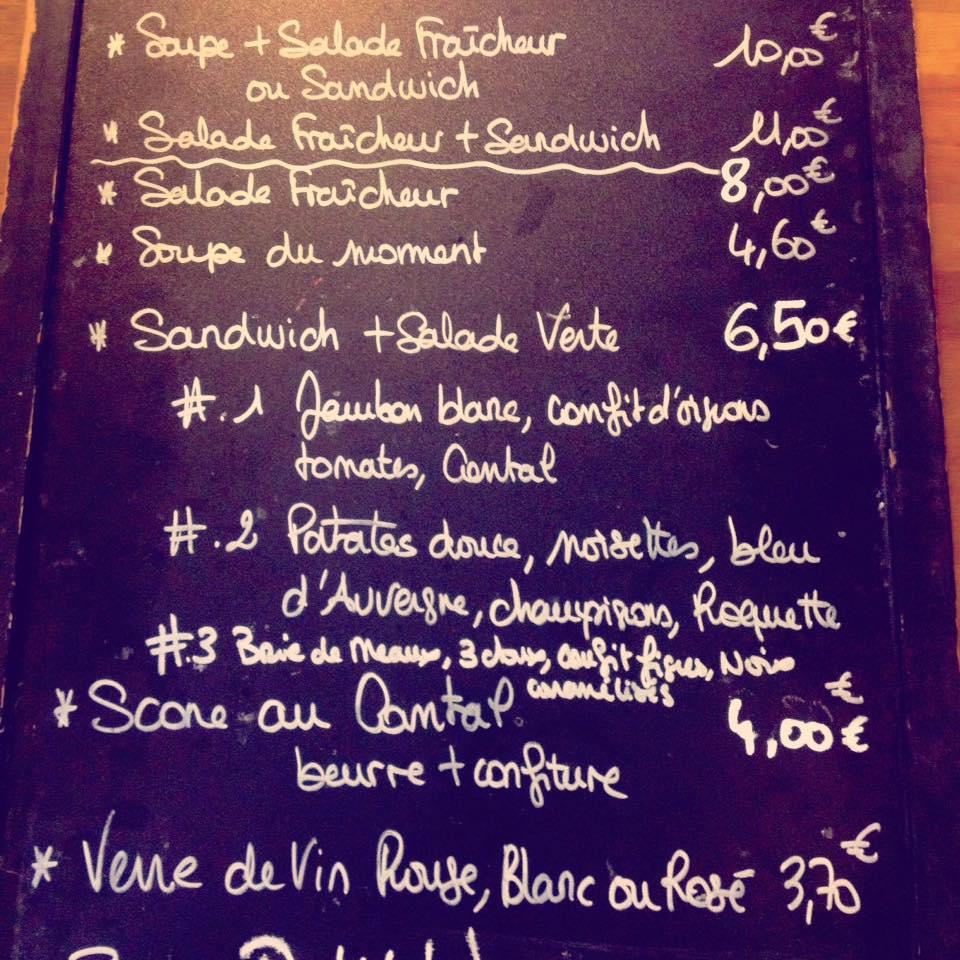 * Soupe + Salade Fraîcheur 10,00€
ou Sandwich
* Salade Fraîcheur + Sandwich 11,00€
* Salade Fraîcheur 8,00€
* Soupe du moment 4,60€
* Sandwich + Salade Verte 6,50€
#.1 Jambon blanc, confit d'oignons
tomates, Cantal
#.2 Patates douce, noisettes, bleu
d'Auvergne, champignons, Roquette
#.3 Brie de Meaux, confit figues, Noix
caramélisés
* Scone au Cantal 4,00€ €
beurre + confiture
* Verre de Vin Rouge, Blanc ou Rosé 3,70€